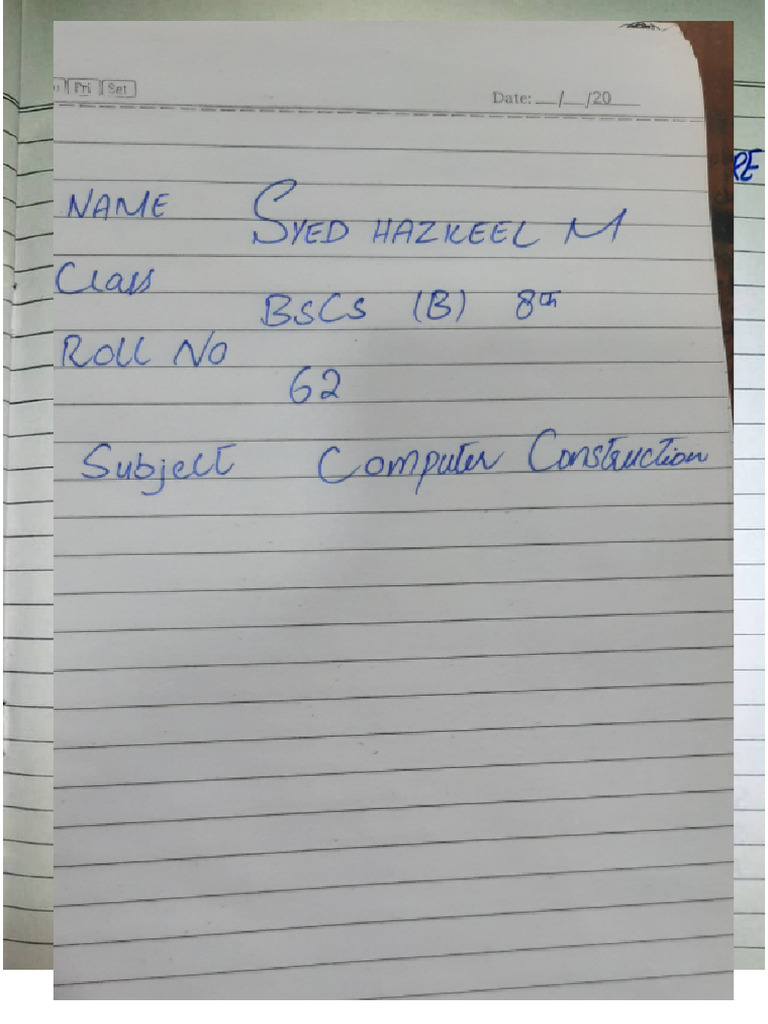 Fri Sat
Date: __/__/20____
RE
NAME SYED HAZKEEL M
Class
BSCS (B) 8th
Roll No
62
Subject Computer Construction